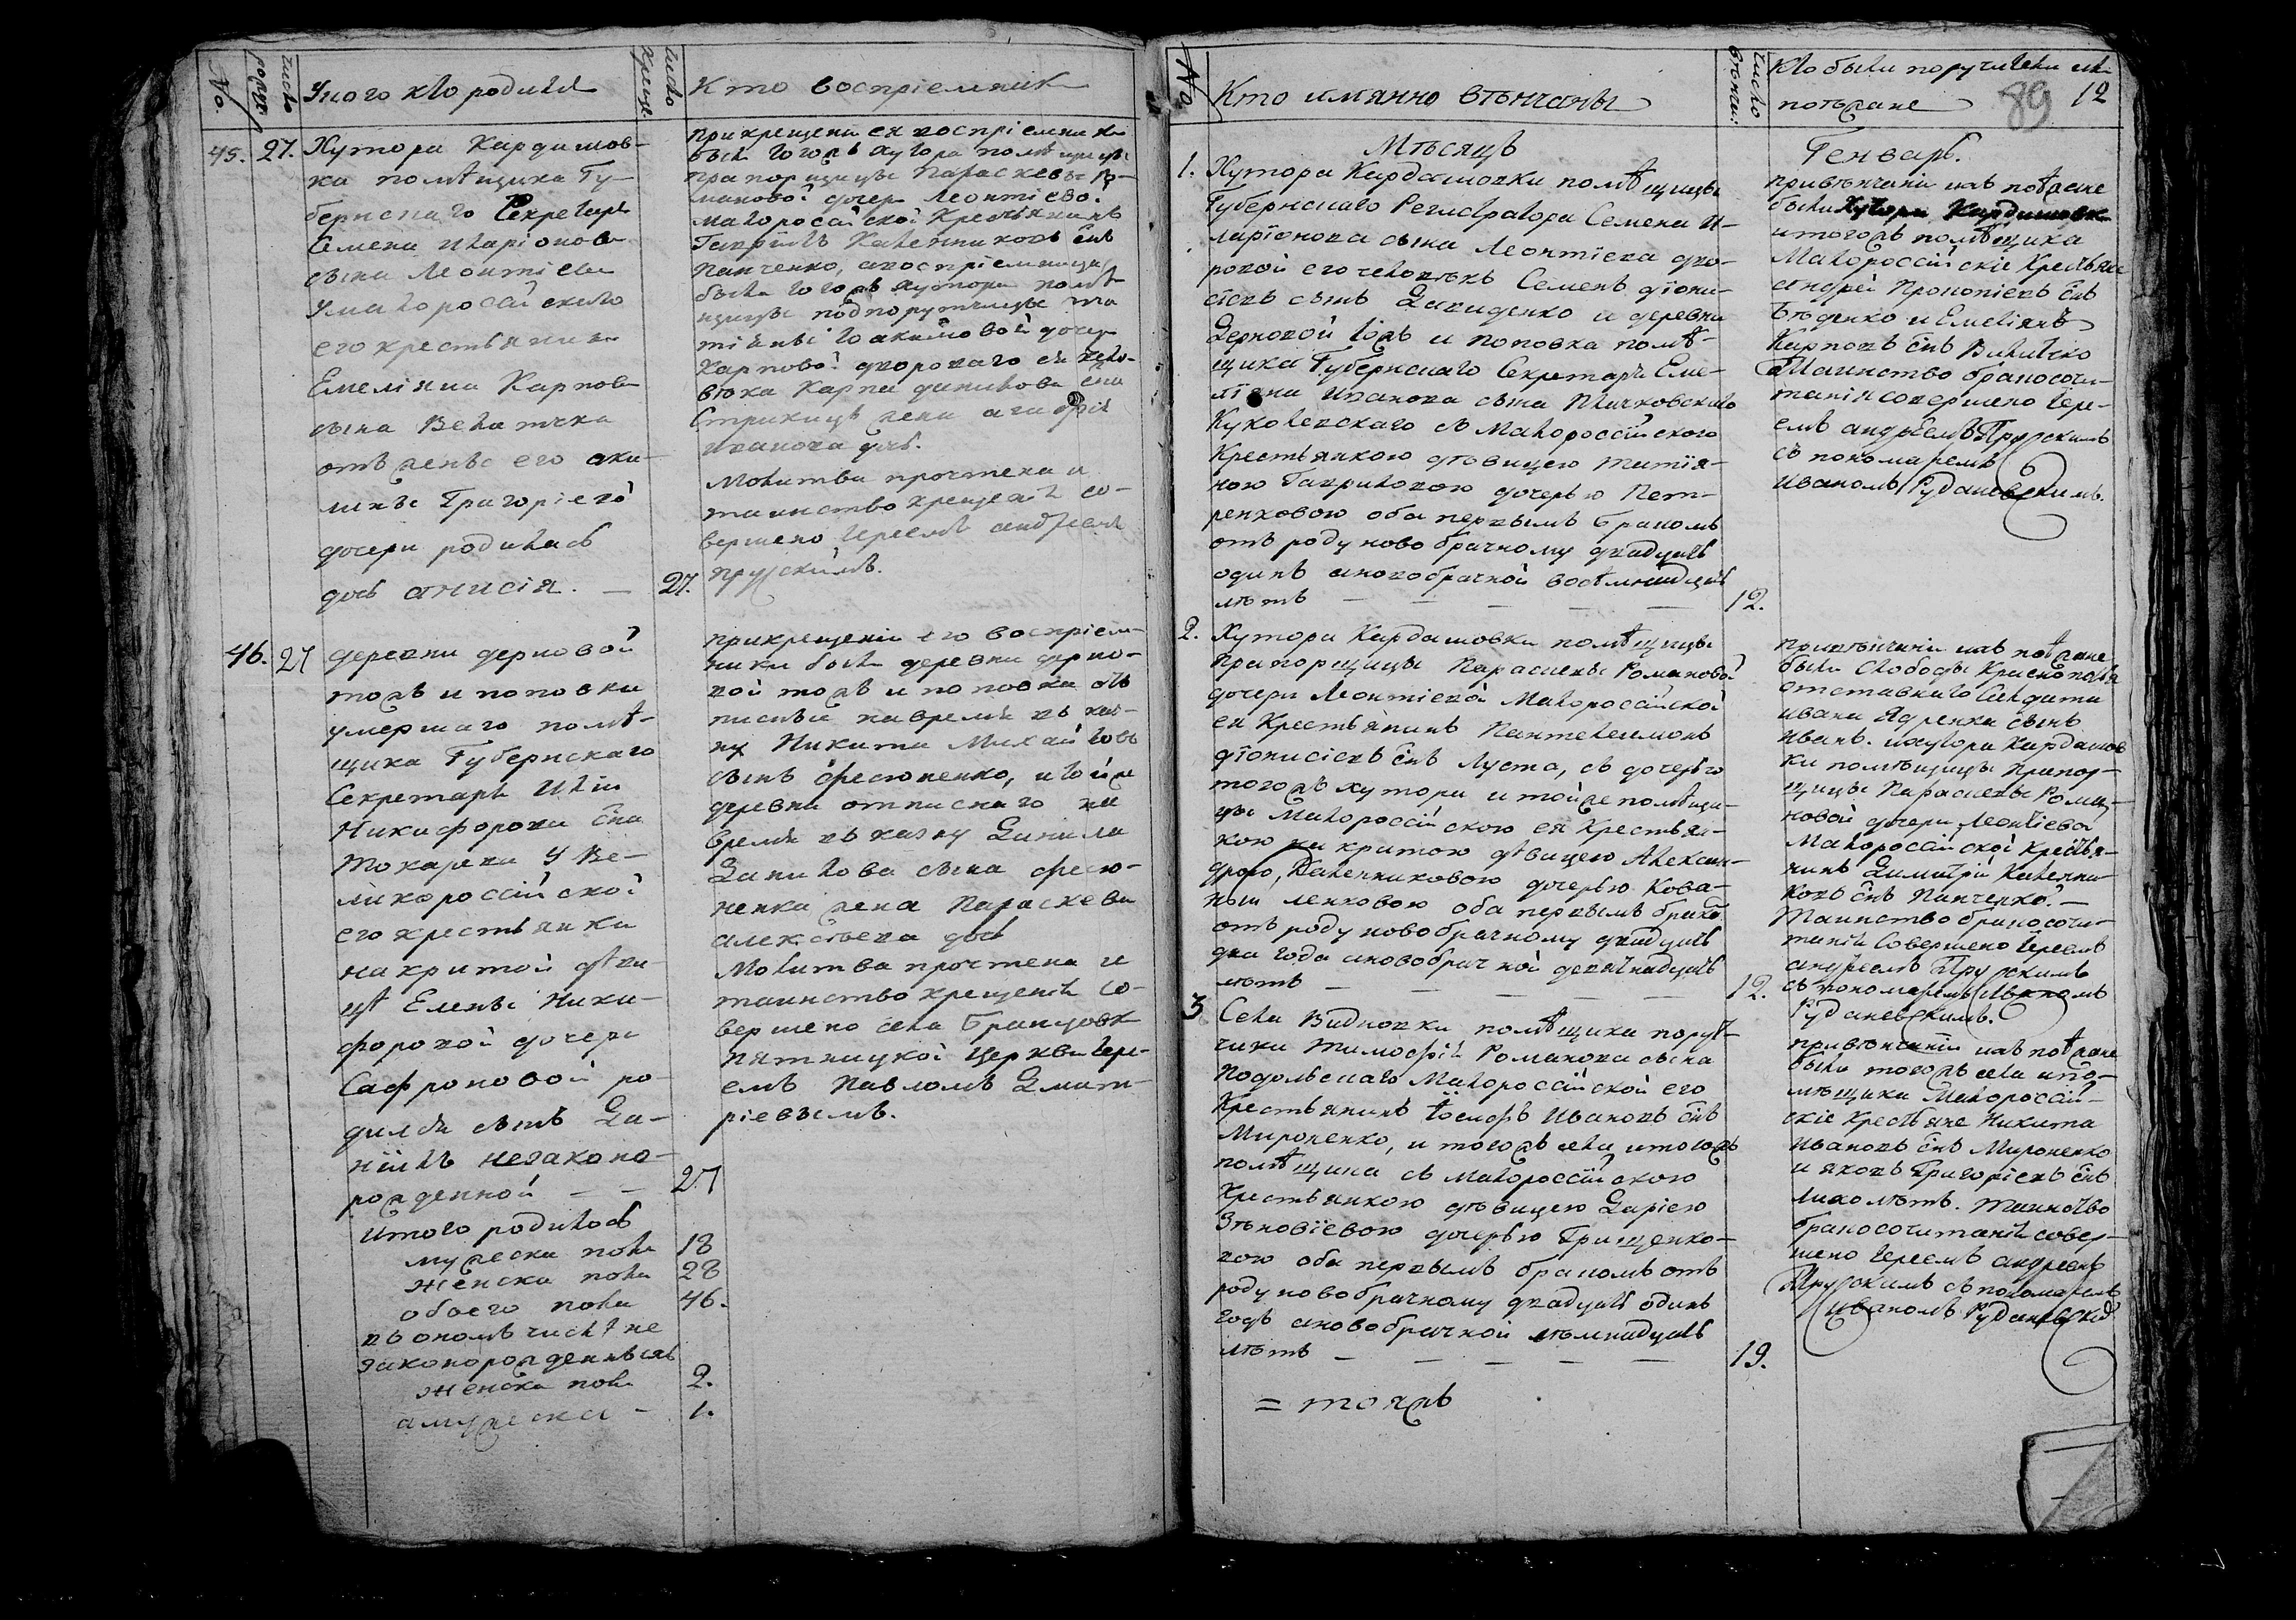 No.
число рожде
У кого кто родился
число крещ:
Кто воспріемник
45.
27.
Хутора Кардашов-
ки помѣщика Гу-
бернскаго Секретаря
Семена Иларіонова
сына Леонтіева
у малороссійскаго
его крестьянина
Емеліяна Карпова
сына Велитчка
отъ жены его аки-
лины Григоріевой
дочери родилась
дочь анисія. —
27.
при крещеніи ея воспріемники
были тогожъ хутора помѣщицы
прапорщицы Параскевы Ро-
мановой дочери Леонтіевой
малороссійской крестьянинъ
Гавріилъ Калениковъ снъ
Панченко, авоспріемница
была тогожъ хутора помѣ-
щицы подпорутчицы та
тіяны Іоакимовой дочери
Карповой двороваго ея чело-
вѣка Карпа данилова сна
жена агафія
иванова дчь.
Молитва прочтена и
таинство крещенія со-
вершено Іереемъ андреемъ
Прускимъ.
46.
27
деревни дерновой
тожъ и поповки
умершаго помѣ-
щика Губернскаго
Секретаря Иліи
Никифорова сна
Токарева у Ве-
ликороссійской
его крестьянки
накритой дѣви-
цѣ Елены Ники-
форовой дочери
Сафроновой ро-
дился сынъ Да-
ніилъ незаконо-
рожденной — —
27
при крещеніи его воспріем-
ники были деревни дерно-
вой тожъ и поповки от-
писныя навремя въ каз-
ну Никита Михайловъ
сынъ Фесюненко, и тойже
деревни отписнаго на
время въ казну Данила
Данилова сына Фесю-
ненка жена Параскева
алексѣева дчь
Молитва прочтена и
таинство крещенія со-
вершено села Бранцовки
пятницкой Церкви Іере-
емъ Павломъ Дмит-
ріевымъ.
итого родилось
мужеска пола 18
женска пола 28
обоего пола 46.
въ ономъ числѣ не
законорожденныхъ
женска пола 2.
амужеска — 1.
No
Кто имянно вѣнчаны
число вѣнчан:
Кто были поручители или
поѣзжане
89
12
Мѣсяцъ
Генварь.
1.
Хутора Кардашовки помѣщицы
Губернскаго Регистратора Семена И-
ларіонова сына Леонтіева дво-
ровой его человѣкъ Семенъ діони-
сіевъ сынъ Давиденко и деревни
Дерновой тожъ и поповка помѣ-
щика Губернскаго Секретаря Еме-
ліяна Иванова сына
Куколевскаго съ Малороссійскою
Крестьянкою дѣвицею татія-
ною Гавриловою дочерью Пет-
ренковою оба первымъ бракомъ
отъ роду новобрачному двадцать
одинъановобрачной восемнадцать
лѣтъ — — — — —
12.
при вѣнчаніи ихъ поѣзжане
были
и тогожъ помѣщика
Малороссійскіе Крестьяне
андрей Прокопіевъ снъ
Бѣденко и Емеліянъ
Карповъ снъ Виличко
Таинство бракосоче-
танія совершено Іере-
емъ андреемъ Прускимъ
съ пономаремъ
Иваномъ Рудановскимъ.
2.
Хутора Кардашовки помѣщицы
прапорщицы Параскевы Романовой
дочери Леонтіевой Малороссійской
ея Крестьянинъ Пантелеимонъ
діонисіевъ снъ Луста, съ дочерью
тогожъ хутора и тойже помѣщи-
цы Малороссійскою ея Крестьян-
кою накритою дѣвицею Алексан-
дрою, Калениковою дочерью Кова-
ленковою оба первымъ бракомъ
отъ роду новобрачному двадцать
два года ановобрачной девятнадцать
лѣтъ — — — — —
12.
при вѣнчаніи ихъ поѣзжане
были Слободы Краснополья
отставнаго Салдата
ивана Ядренка сынъ
Иванъ. и хутора Кардашов
ки помѣщицы Прапор-
щицы Параскевы Рома-
новой дочери Леонтіевой
Малороссійской Крестья-
нинъ Димитрій Калени-
ковъ снъ Панченко. —
Таинство бракосоче-
танія совершено Іереемъ
андреемъ Прускимъ
съ пономаремъ Иваномъ
Рудановскимъ.
3
Села Видновки помѣщика порут-
чика Тимофея Романова сына
Подольскаго Малороссійской его
Крестьянинъ Іосифъ Ивановъ снъ
Мироненко, и тогожъ села и тогожъ
помѣщика съ малороссійскою
Крестьянкою дѣвицею Даріею
Зѣновіевою дочерью Грищенко-
вою оба первымъ бракомъ отъ
роду новобрачному двадцать одинъ
годъ ановобрачной семнадцать
лѣтъ — — — — —
19.
при вѣнчаніи ихъ поѣзжане
были тогожъ села ипо-
мѣщика Малороссій-
скіе Крестьяне Никита
Ивановъ снъ Мироненко
и яковъ Григоріевъ снъ
Таинство
бракосочетанія совер-
шено Іереемъ андреемъ
Прускимъ съ пономаремъ
Иваномъ Рудановским
= тожъ